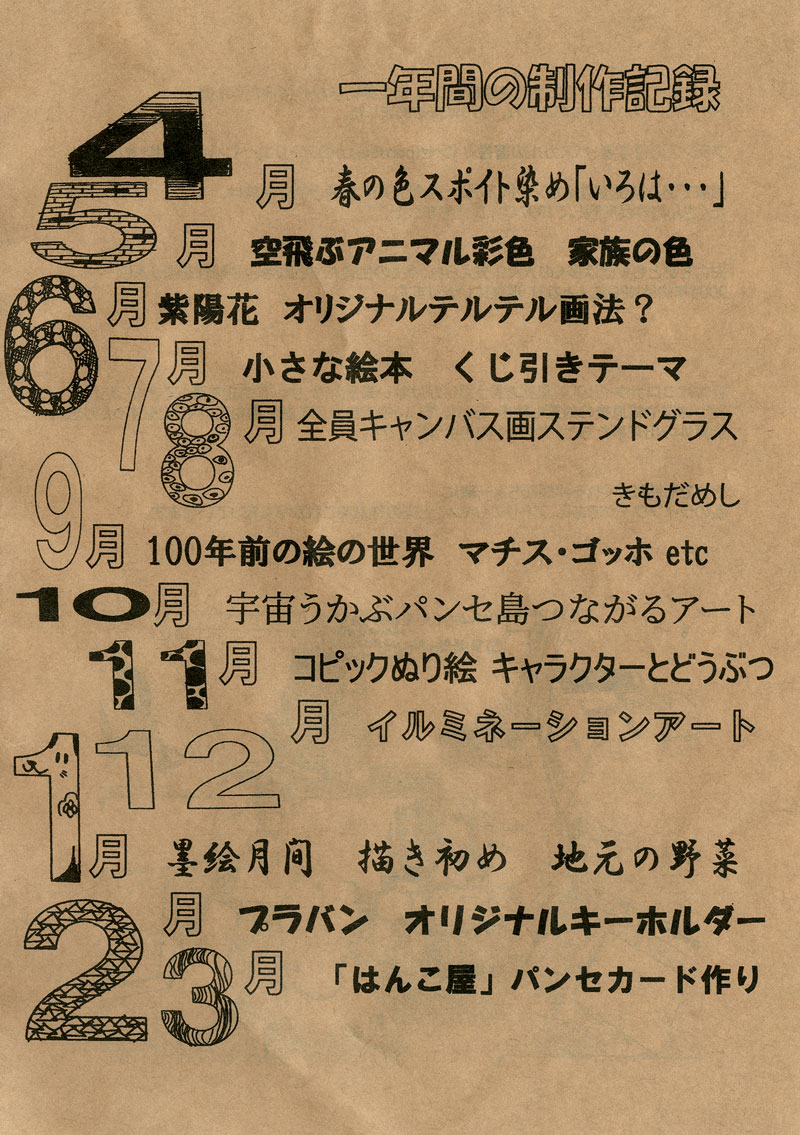 一年間の制作記録
4月 春の色スポイト染め「いろは・・・」
5月 空飛ぶアニマル彩色 家族の色
6月 紫陽花 オリジナルテルテル画法？
7月 小さな絵本 くじ引きテーマ
8月 全員キャンバス画ステンドグラス
きもだめし
9月 100年前の絵の世界 マチス・ゴッホ etc
10月 宇宙うかぶパンセ島つながるアート
11月 コピックぬり絵 キャラクターとどうぶつ
12月 イルミネーションアート
1月 墨絵月间 描き初め 地元の野菜
2月 プラバン オリジナルキーホルダー
3月 「はんこ屋」パンセカード作り